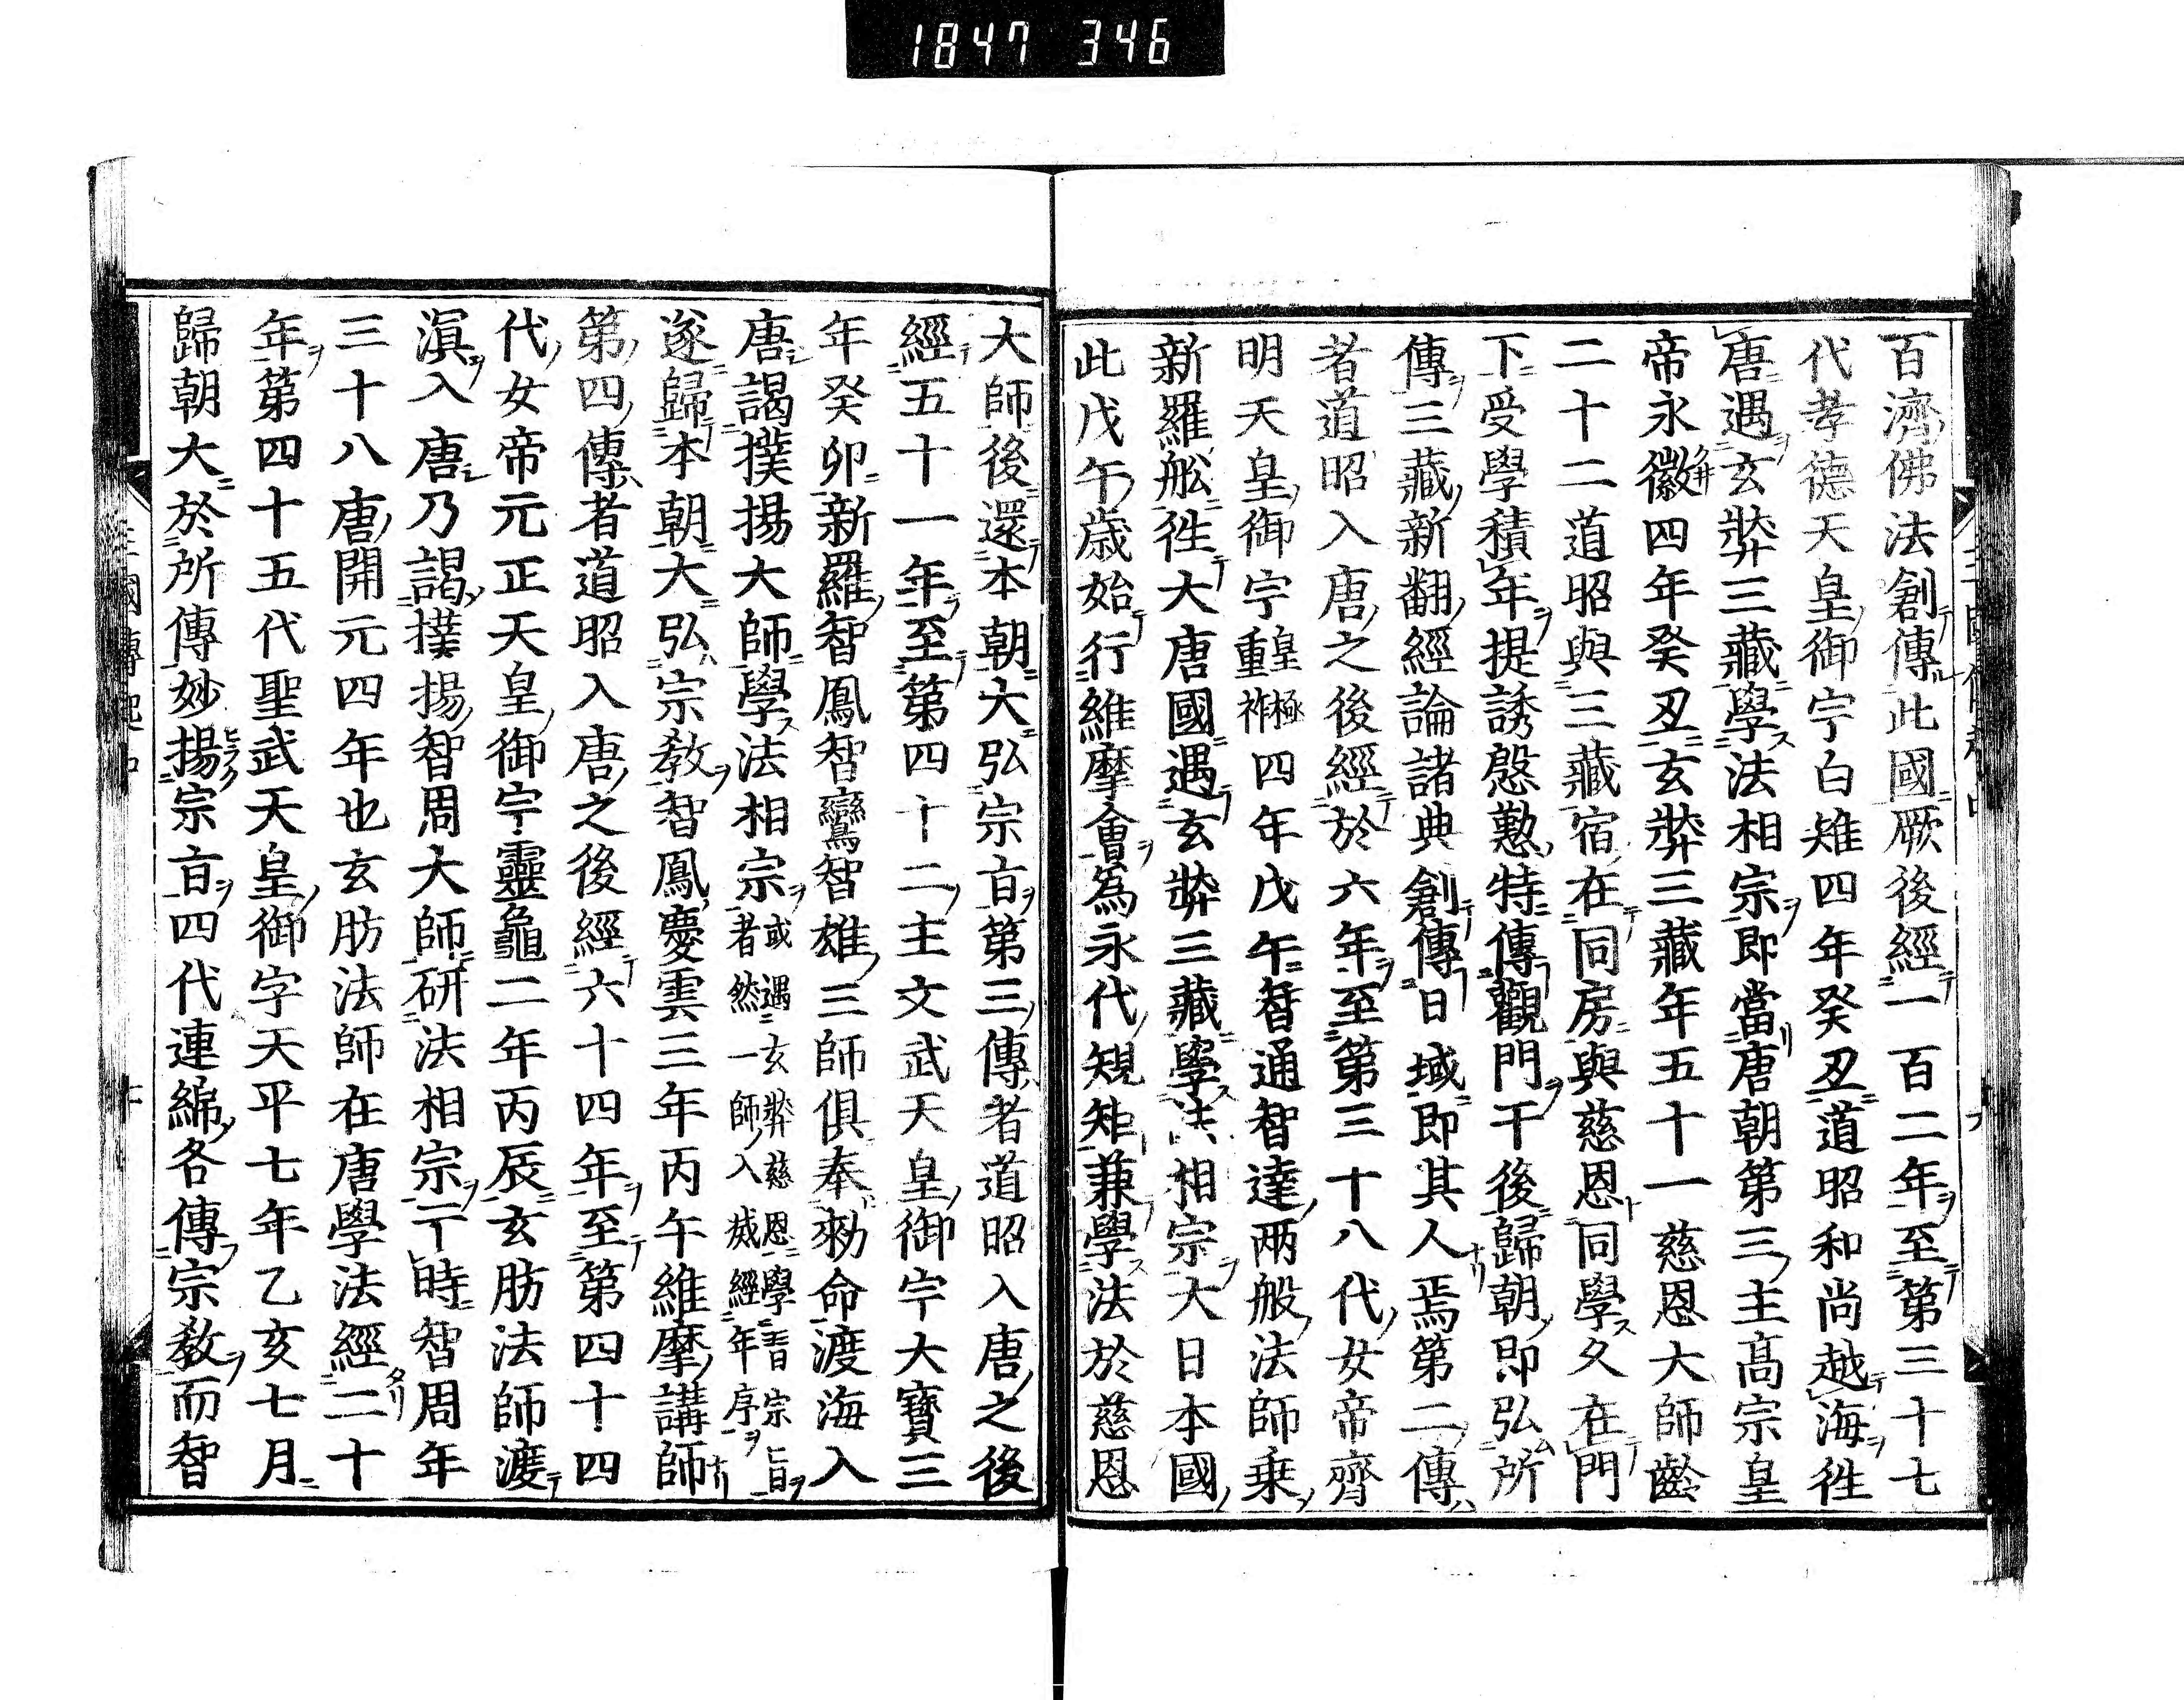 1847 346
百濟佛法創傳此國厥後經一百二年至第三十七
代孝德天皇御宇白雉四年癸丑道昭和尚越海徃
唐遇玄弉三藏學法相宗即當唐朝第三主高宗皇
帝永徽四年癸丑玄弉三藏年五十一慈恩大師齡
二十二道昭與三藏宿在同房與慈恩同學久在門
下受學積年提誘慇懃特傳觀門干後歸朝即弘所
傳三藏新翻經論諸典創傳日域即其人焉第二傳
者道昭入唐之後經於六年至第三十八代女帝齊
明天皇御宇重祚皇極四年戊午智通智達兩般法師乗
新羅舩徃大唐國遇玄弉三藏學法相宗大日本國
此戊午歳始行維摩會為永代規矩兼學法於慈恩
大師後還本朝大弘宗㫖第三傳者道昭入唐之後
經五十一年至第四十二主文武天皇御宇大寶三
年癸卯新羅智鳳智鸞智雄三師俱奉勅命渡海入
唐謁撲揚大師學法相宗或遇玄弉慈恩學習宗旨者然一師入滅經年序
遂歸本朝大弘宗教智鳳慶雲三年丙午維摩講師
第四傳者道昭入唐之後經六十四年至第四十四
代女帝元正天皇御宇靈龜二年丙辰玄肪法師渡
滇入唐乃謁撲揚智周大師研法相宗丁時智周年
三十八唐開元四年也玄肪法師在唐學法經二十
年第四十五代聖武天皇御字天平七年乙亥七月
歸朝大於所傳妙揚宗㫖四代連綿各傳宗教而智
三國傳記中